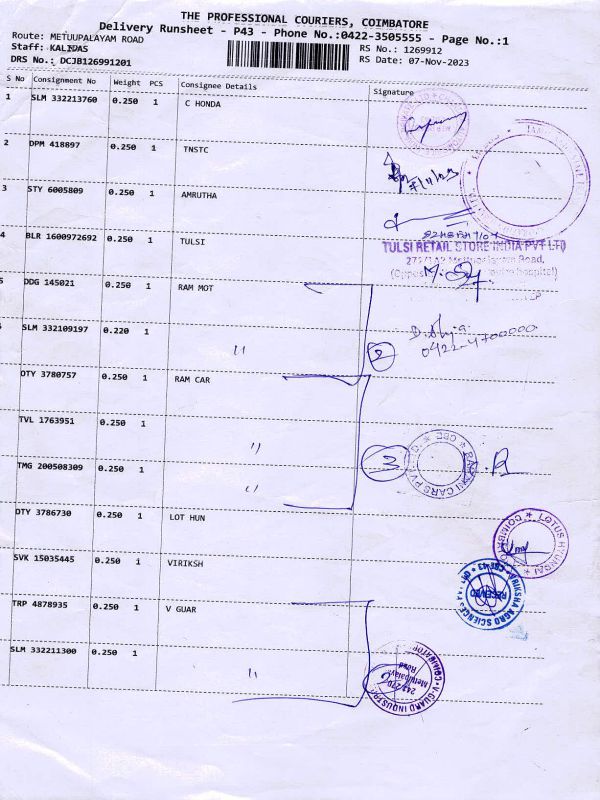 THE PROFESSIONAL COURIERS, COIMBATORE
Delivery Runsheet - P43 - Phone No.:0422-3505555 - Page No.:1
Route: METUUPALAYAM ROAD
Staff: KALIDAS
RS No.: 1269912
DRS No.: DCJB126991201
RS Date: 07-Nov-2023
S No Consignment No Weight PCS Consignee Details Signature
1 SLM 332213760 0.250 1 C HONDA
2 DPM 418897 0.250 1 TNSTC
3 STY 6005809 0.250 1 AMRUTHA
4 BLR 1600972692 0.250 1 TULSI
TULSI RETAIL STORE INDIA PVT LTD
DDG 145021 0.250 1 RAM MOT
SLM 332109197 0.220 1 "
2
0422-4700000
OTY 3780757 0.250 1 RAM CAR
TVL 1763951 0.250 1 "
3
TMG 200508309 0.250 1 "
OTY 3786730 0.250 1 LOT HUN
LOTUS HYUNDAI * COIMBATORE *
SVK 15035445 0.250 1 VIRIKSH
RECEIVED
TRP 4878935 0.250 1 V GUAR
SLM 332211300 0.250 1 "
V-GUARD INDUSTR